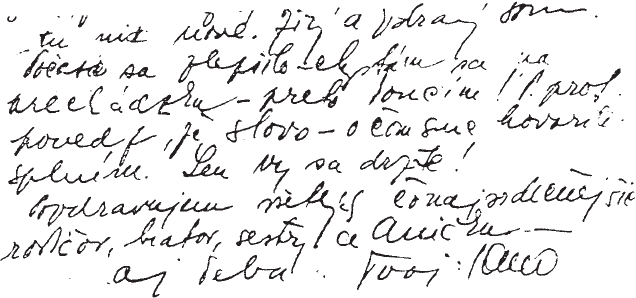 "tu" nič nové. Živý a zdravý som.
Počasie sa zlepšilo – chystám sa na
prechádzku – preto končím! P. prof.
povedz, že slovo – o čom sme hovorili
splním. Len vy sa držte!
Pozdravujem všetkých čo najsrdečnejšie
rodičov, bratov, sestry a Aničku –
aj Teba. Tvoj: